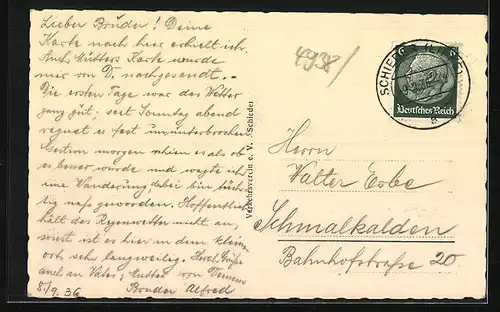 Lieber Bruder! Deine
Karte nach hier erhielt ich.
Auch Mutters Karte wurde
mir von D. nachgesandt.
Die ersten Tage war das Wetter
ganz gut; seit Sonntag abend
regnet es fast ununterbrochen.
Gestern morgen schien es als ob
es besser würde und wagte ich
eine Wanderung, dabei bin tüch-
tig nass geworden. Hoffentlich
hält das Regenwetter nicht an,
sonst ist es hier in dem kleinen
Ort sehr langweilig. Herzl. Grüße
auch an Vater, Mutter von Deinem
8./9. 36 Bruder Alfred
Verkehrsverein e. V. Schieder
4938/
SCHIEDER
Deutsches Reich
Herrn
Walter Erbe
Schmalkalden
Bahnhofstraße 20